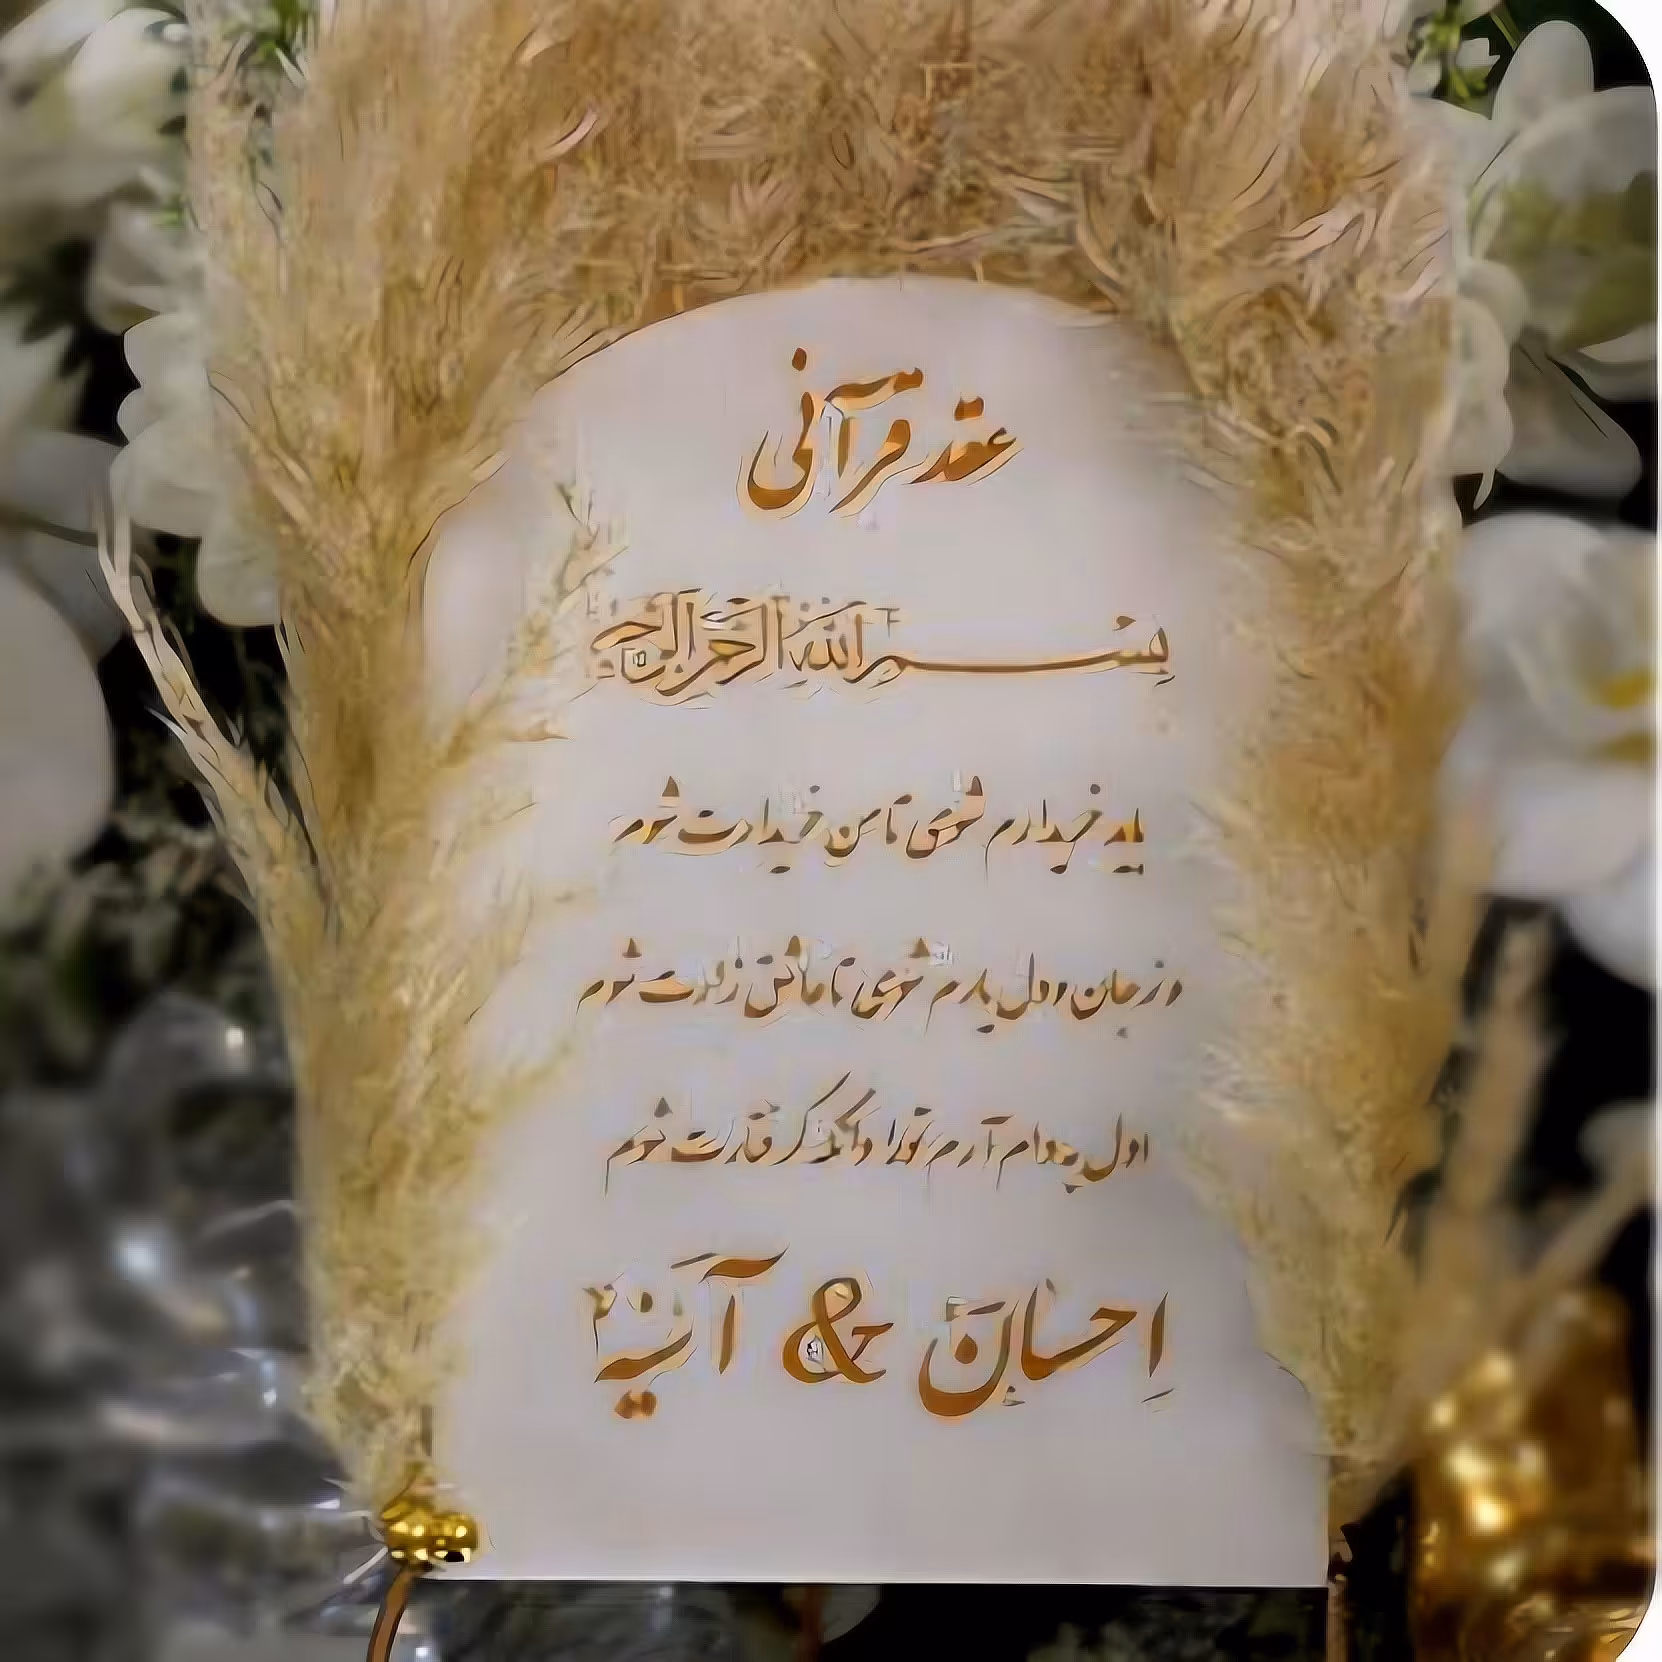 عقد قرآنی
بسم الله الرحمن الرحیم
باید خریدارم شوی تا من خریدارت شوم
وز جان و دل یارم شوی تا عاشق زارت شوم
اول به دام آرم تو را وانگه گرفتارت شوم
احسان & آنیسا